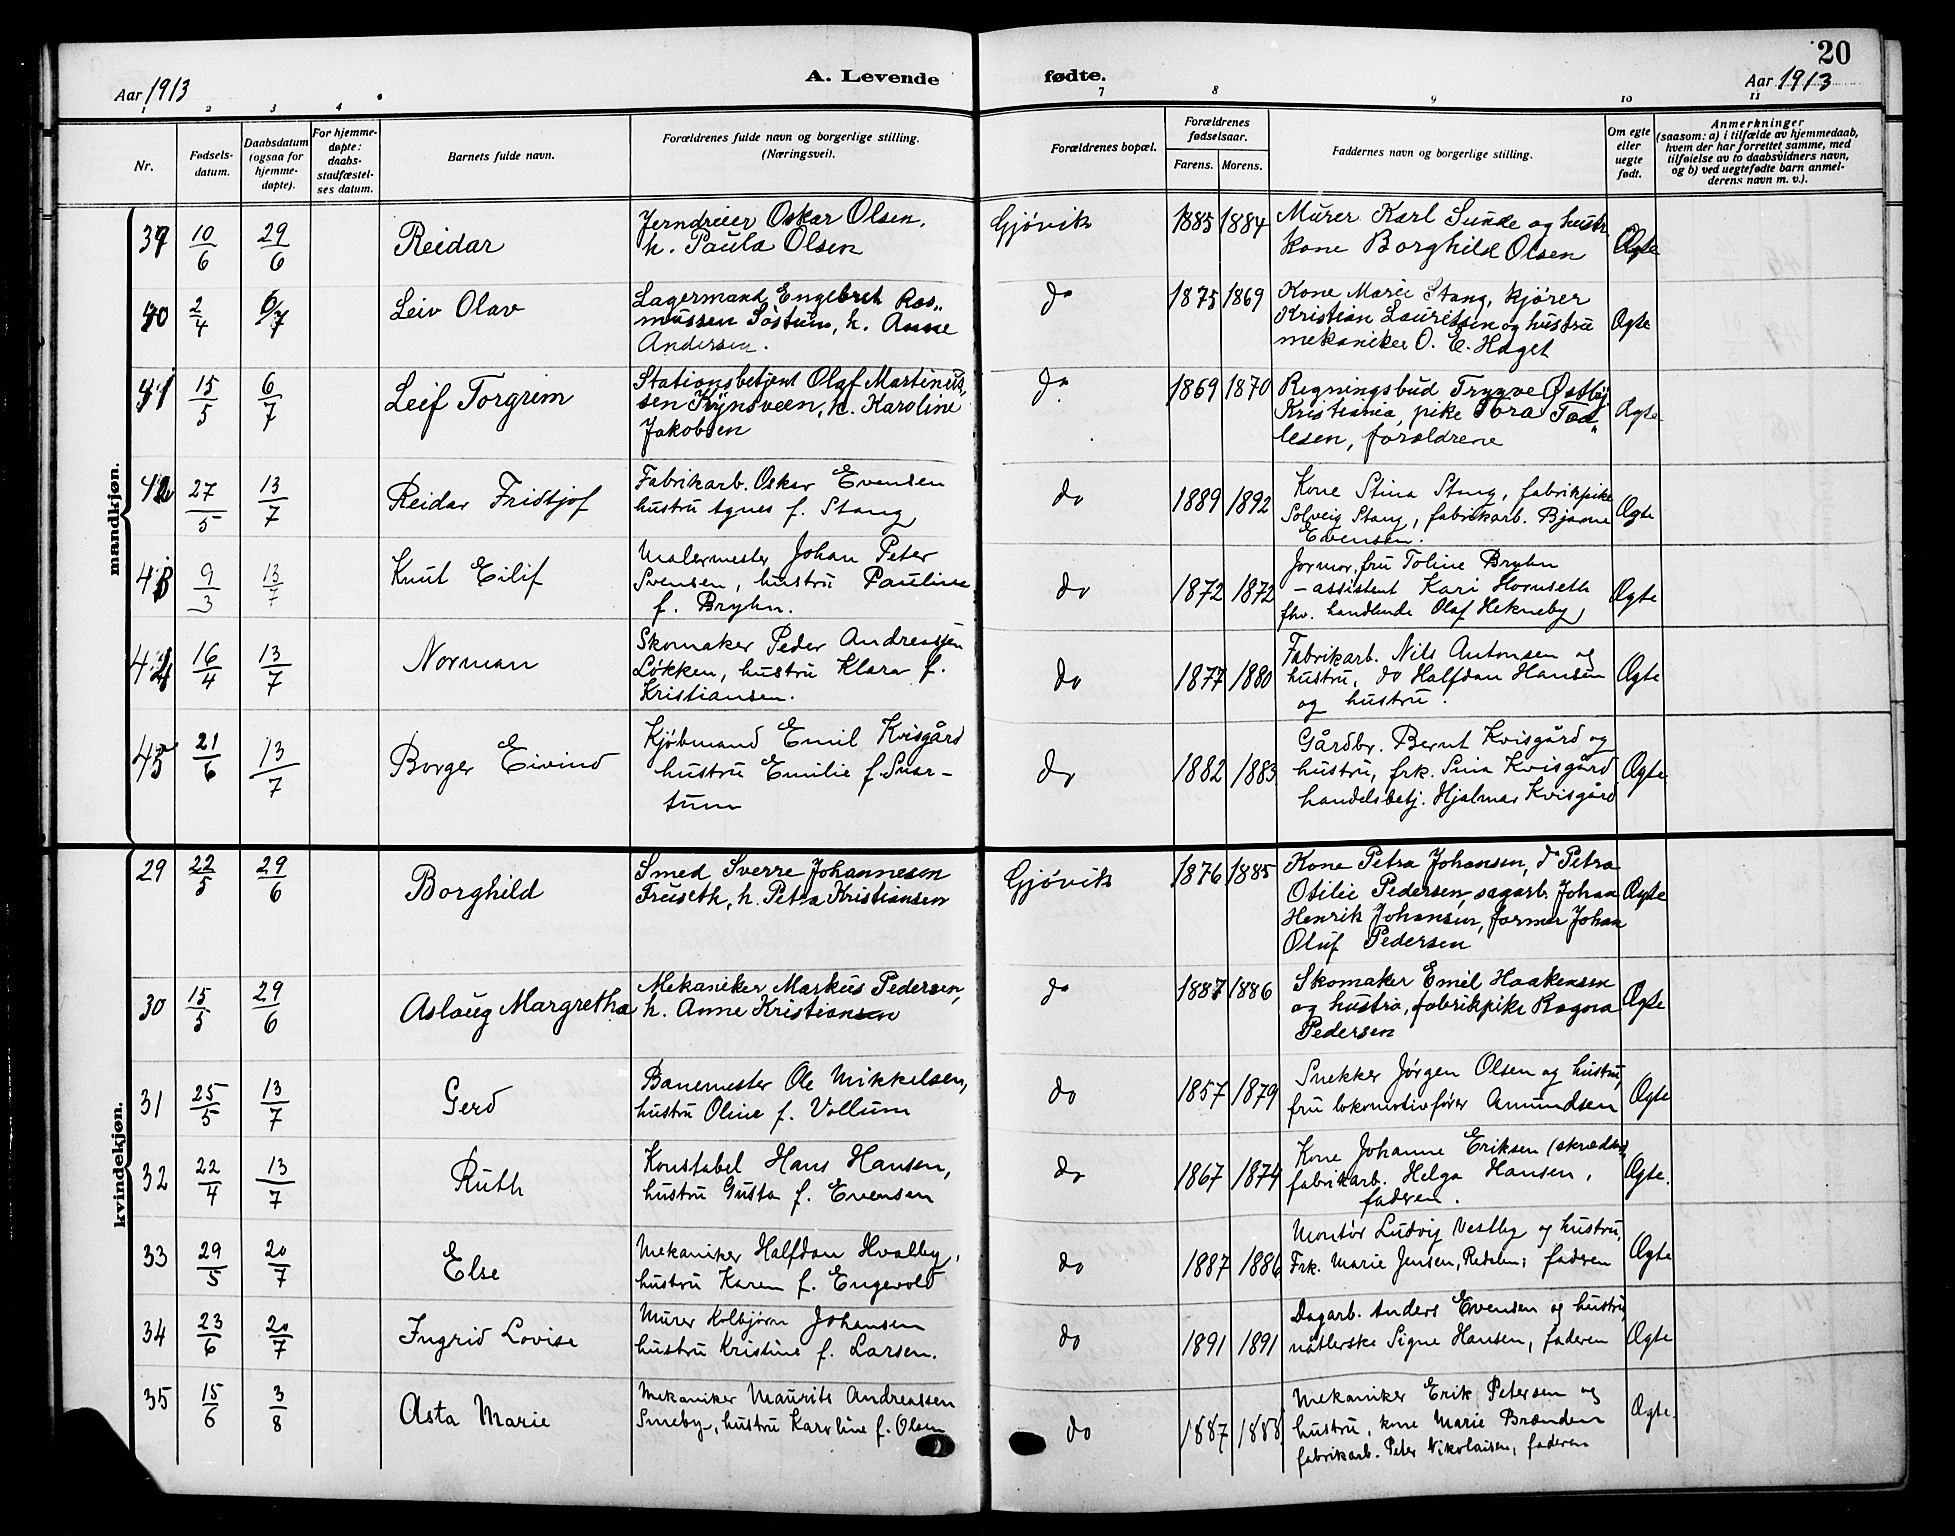 20
A. Levende fødte.
Aar 1913
Aar 1913
1 2 3 4 7 8 9 10 11
Nr.
Fødsels-
datum.
Daabsdatum
(ogsaa for
hjemme-
døpte).
For hjemme-
døpte:
daabs-
stadfæstel-
ses datum.
Barnets fulde navn.
Forældrenes fulde navn og borgerlige stilling.
(Næringsvei).
Forældrenes bopæl.
Forældrenes
fødselsaar.
Farens. Morens.
Faddernes navn og borgerlige stilling.
Om egte
eller
uegte
født.
Anmerkninger
(saasom: a) i tilfælde av hjemmedaab,
hvem der har forrettet samme, med
tilføielse av to daabsvidners navn,
og b) ved uegtefødte barn anmel-
derens navn m. v.).
mandkjøn.
10/6 29/6 Reidar
Jerndreier Oskar Olsen,
h. Paula Olsen
Gjøvik 1885 1884
Murer Karl Sunde og hustr
kone Borghild Olsen
Ægte
40 2/4 6/7 Leiv Olav
Lagermand Engebret Ras„
mussen Søstum, h. Anne
Andersen.
do 1875 1869
Kone Marie Stang, kjører
Kristian Lauritsen og hustru
mekaniker O. E. Haget
Ægte
41 15/5 6/7 Leif Torgrim
Stationsbetjent Olaf Martinus„
sen Kynsveen, h. Karoline
Jakobsen
do 1869 1870
Regningsbud Trygve Østby
Kristiania, pike Tora Tad„
lesen, forældrene
Ægte
42 27/5 13/7 Reidar Fridtjof
Fabrikarb. Oskar Evensen
hustru Agnes f. Stang
do 1889 1892
Kone Stina Stang, fabrikpike
Solveig Stang, fabrikarb. Bjarne
Evensen.
Ægte
43 9/3 13/7 Knut Eilif
Malermester Johan Peter
Svensen, hustru Pauline
f. Bryhn.
do 1872 1872
Jormor, fru Toline Bryhn
– assistent Kari Hornseth
fhv. handlende Olaf Hekneby
Ægte
44 16/4 13/7 Norman
Skomaker Peder Andreassen
Løkken, hustru Klara f.
Kristiansen.
do 1877 1880
Fabrikarb. Nils Antonsen og
hustru, do Halfdan Hansen
og hustru.
Ægte
45 21/6 13/7 Borger Eivind
Kjøbmand Emil Kvisgård
hustru Emilie f. Svar-
tum
do 1882 1883
Gårdbr. Bernt Kvisgård og
hustru, frk. Sina Kvisgård
handelsbetj. Hjalmar Kvisgård
Ægte
kvindekjøn.
29 22/5 29/6 Borghild
Smed Sverre Johannesen
Fruseth, h. Petra Kristiansen
Gjøvik 1876 1885
Kone Petra Johansen, do Petra
Otilie Pedersen, sagarb. Johan
Henrik Johansen, former Johan
Oluf Pedersen
Ægte
30 15/5 29/6 Aslaug Margretha
Mekaniker Markus Pedersen,
h. Anne Kristiansen
do 1887 1886
Skomaker Emil Haakensen
og hustru, fabrikpike Ragna
Pedersen
Ægte
31 25/5 13/7 Gerd
Banemester Ole Mikkelsen,
hustru Oline f. Vollum
do 1857 1879
Snekker Jørgen Olsen og hustru,
fru lokomotivfører Amundsen
Ægte
32 22/4 13/7 Ruth
Konstabel Hans Hansen,
hustru Gusta f. Evensen
do 1867 1874
Kone Johanne Eriksen (skrædder)
fabrikarb. Helga Hansen,
faderen.
Ægte.
33 29/5 20/7 Else
Mekaniker Halfdan Hvalby,
hustru Karen f. Engevold
do 1887 1886
Montør Ludvig Vestby og hustru,
Frk. Marie Jensen, Redalen; faderen
Ægte
34 23/6 20/7 Ingrid Lovise
Murer Kolbjørn Johansen
hustru Kristine f. Larsen.
do 1891 1891
Dagarb. Anders Evensen og hustru
nåtlerske Signe Hansen, faderen
Ægte
35 15/6 3/8 Asta Marie
Mekaniker Maurits Andreassen
Smeby, hustru Karoline f. Olsen
do 1887 1888
Mekaniker Erik Petersen og
hustru, kone Marie Brænden
fabrikarb. Peter Nikolaisen, faderen
Ægte.